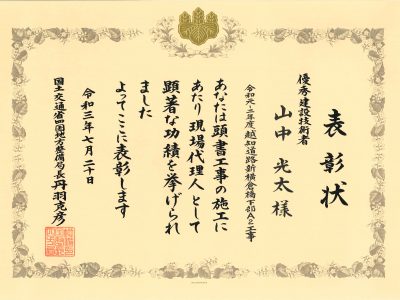 表彰状
優秀建設技術者
山中 光太 様
令和元-二年度越知道路新横倉橋下部A2工事
あなたは頭書工事の施工に
あたり現場代理人として
顕著な功績を挙げられ
ました
よってここに表彰します
令和三年七月二十日
国土交通省四国地方整備局長 丹羽克彦